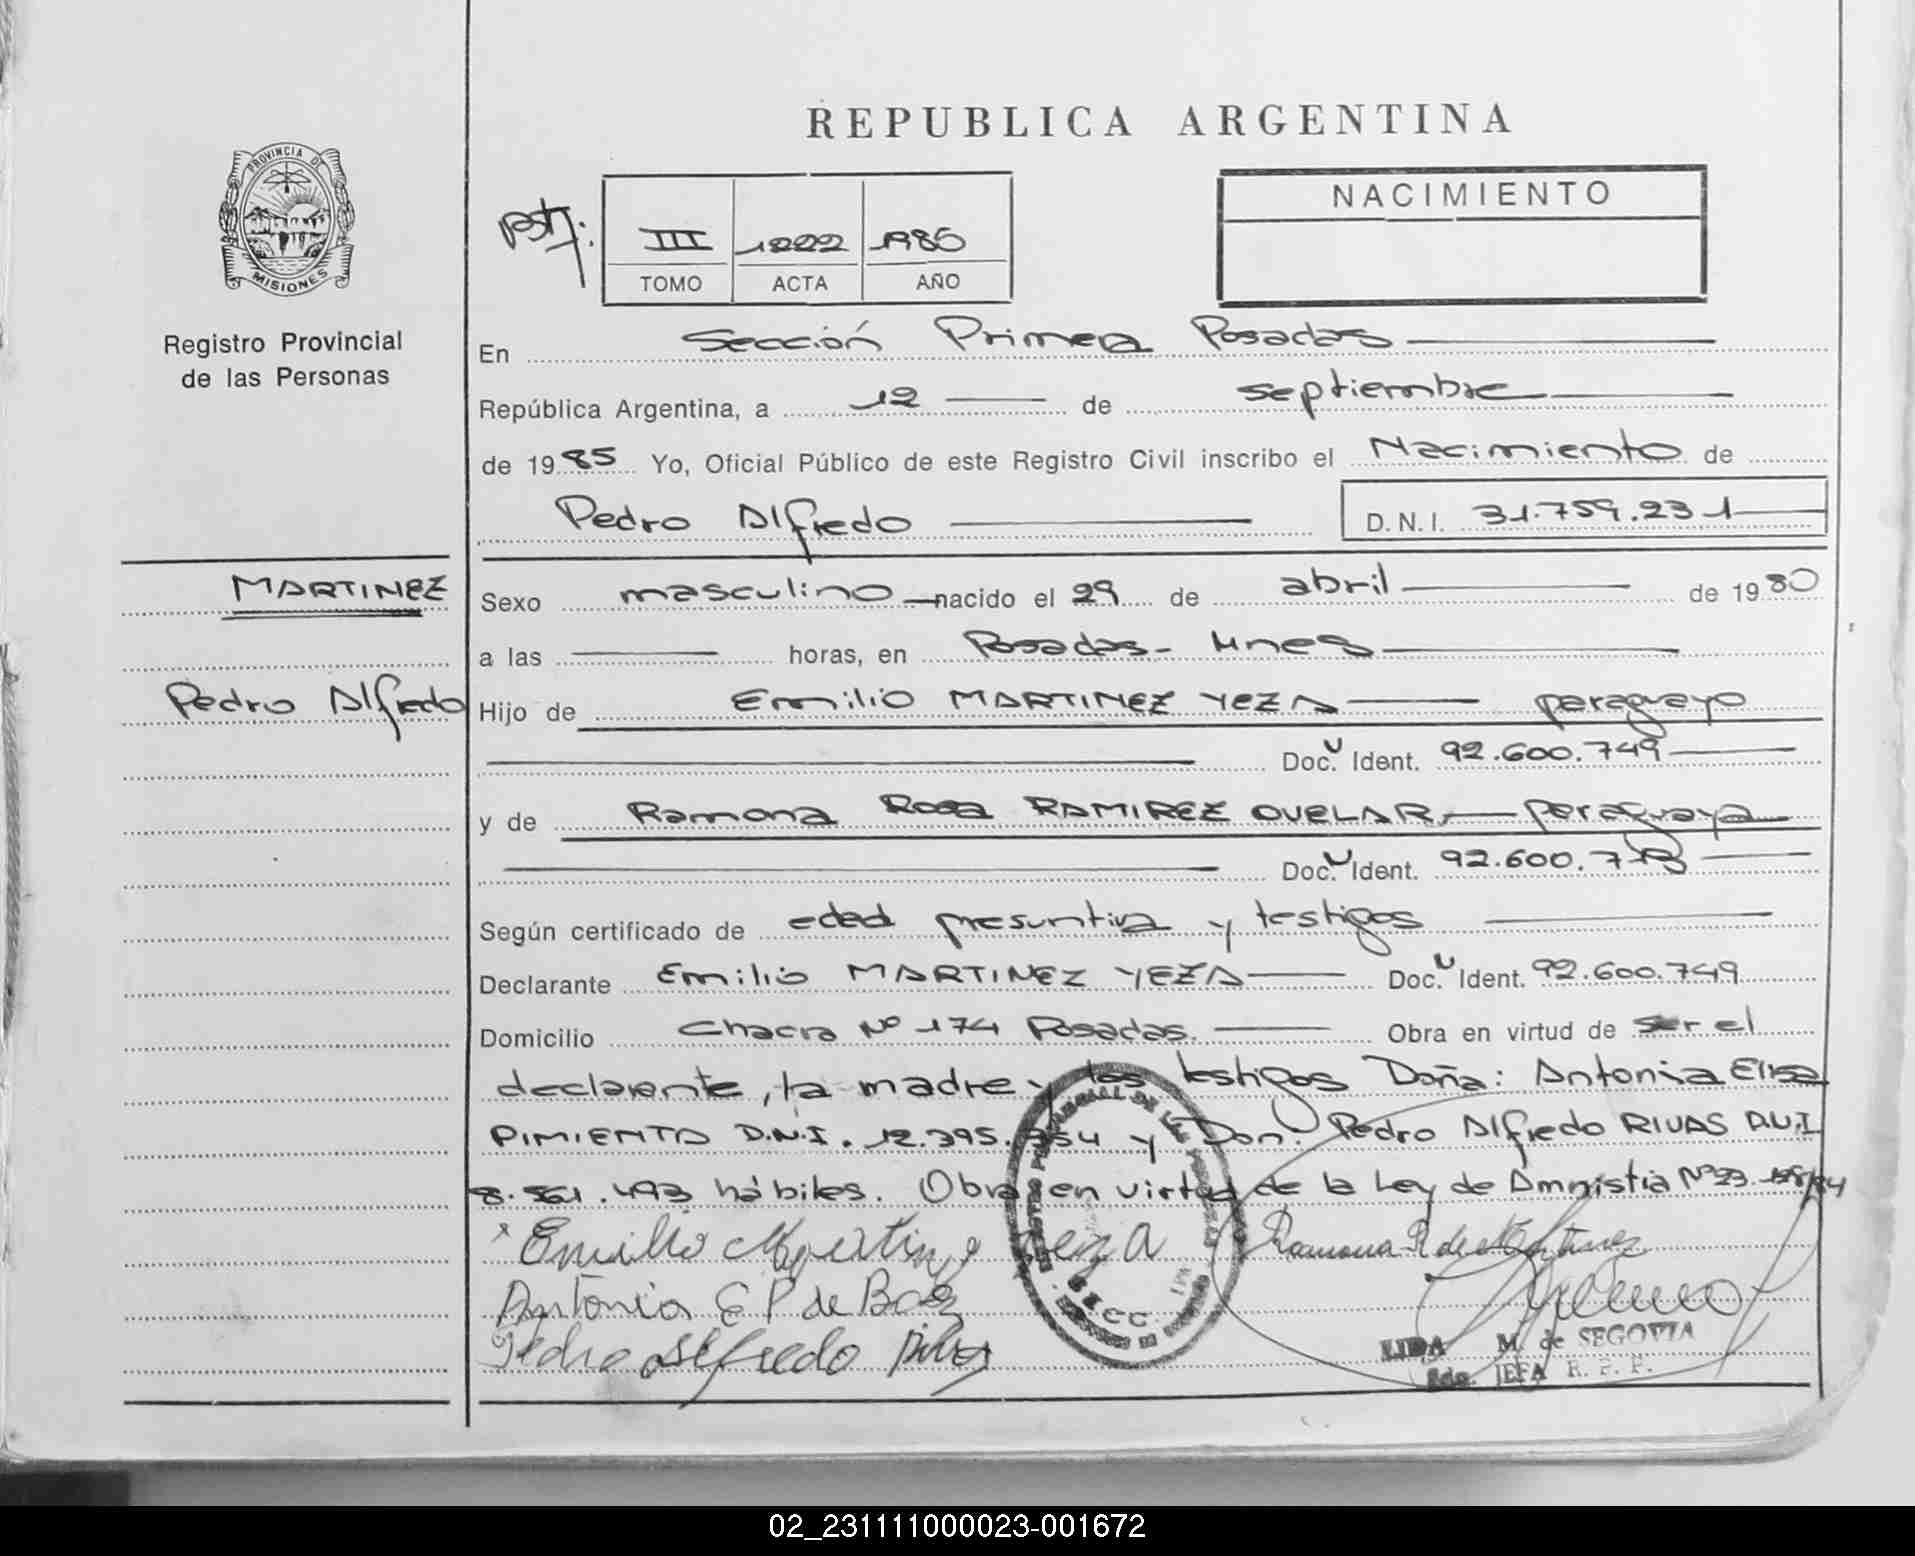 REPUBLICA ARGENTINA
PROVINCIA DE
MISIONES
Registro Provincial
de las Personas
III 1222 1985
TOMO ACTA AÑO
NACIMIENTO
En Sección Primera Posadas
República Argentina, a 12 de septiembre
de 1985 Yo, Oficial Público de este Registro Civil inscribo el Nacimiento de
Pedro Alfredo D.N.I. 31.759.231
MARTINEZ
Sexo masculino nacido el 29 de abril de 1980
a las horas, en Posadas - Mnes
Pedro Alfredo
Hijo de Emilio MARTINEZ YEZA paraguayo
Doc. Ident. 92.600.749
y de Ramona Rosa RAMIREZ OVELAR paraguaya
Doc. Ident. 92.600.713
Según certificado de edad presuntiva y testigos
Declarante Emilio MARTINEZ YEZA Doc. Ident. 92.600.749
Domicilio Chacra Nº 174 Posadas. Obra en virtud de ser el
declarante, la madre y los testigos Doña: Antonia Elisa
PIMIENTA D.N.I. 12.395.354 y Don: Pedro Alfredo RIVAS D.N.I
8.561.493 hábiles. Obra en virtud de la Ley de Amnistia Nº 23
Emilio Martinez Yeza Ramona R de Martinez
Antonia E P de Baez
Pedro Alfredo Rivas
LIDA M. de SEGOVIA
JEFA R. P. P.
02_231111000023-001672